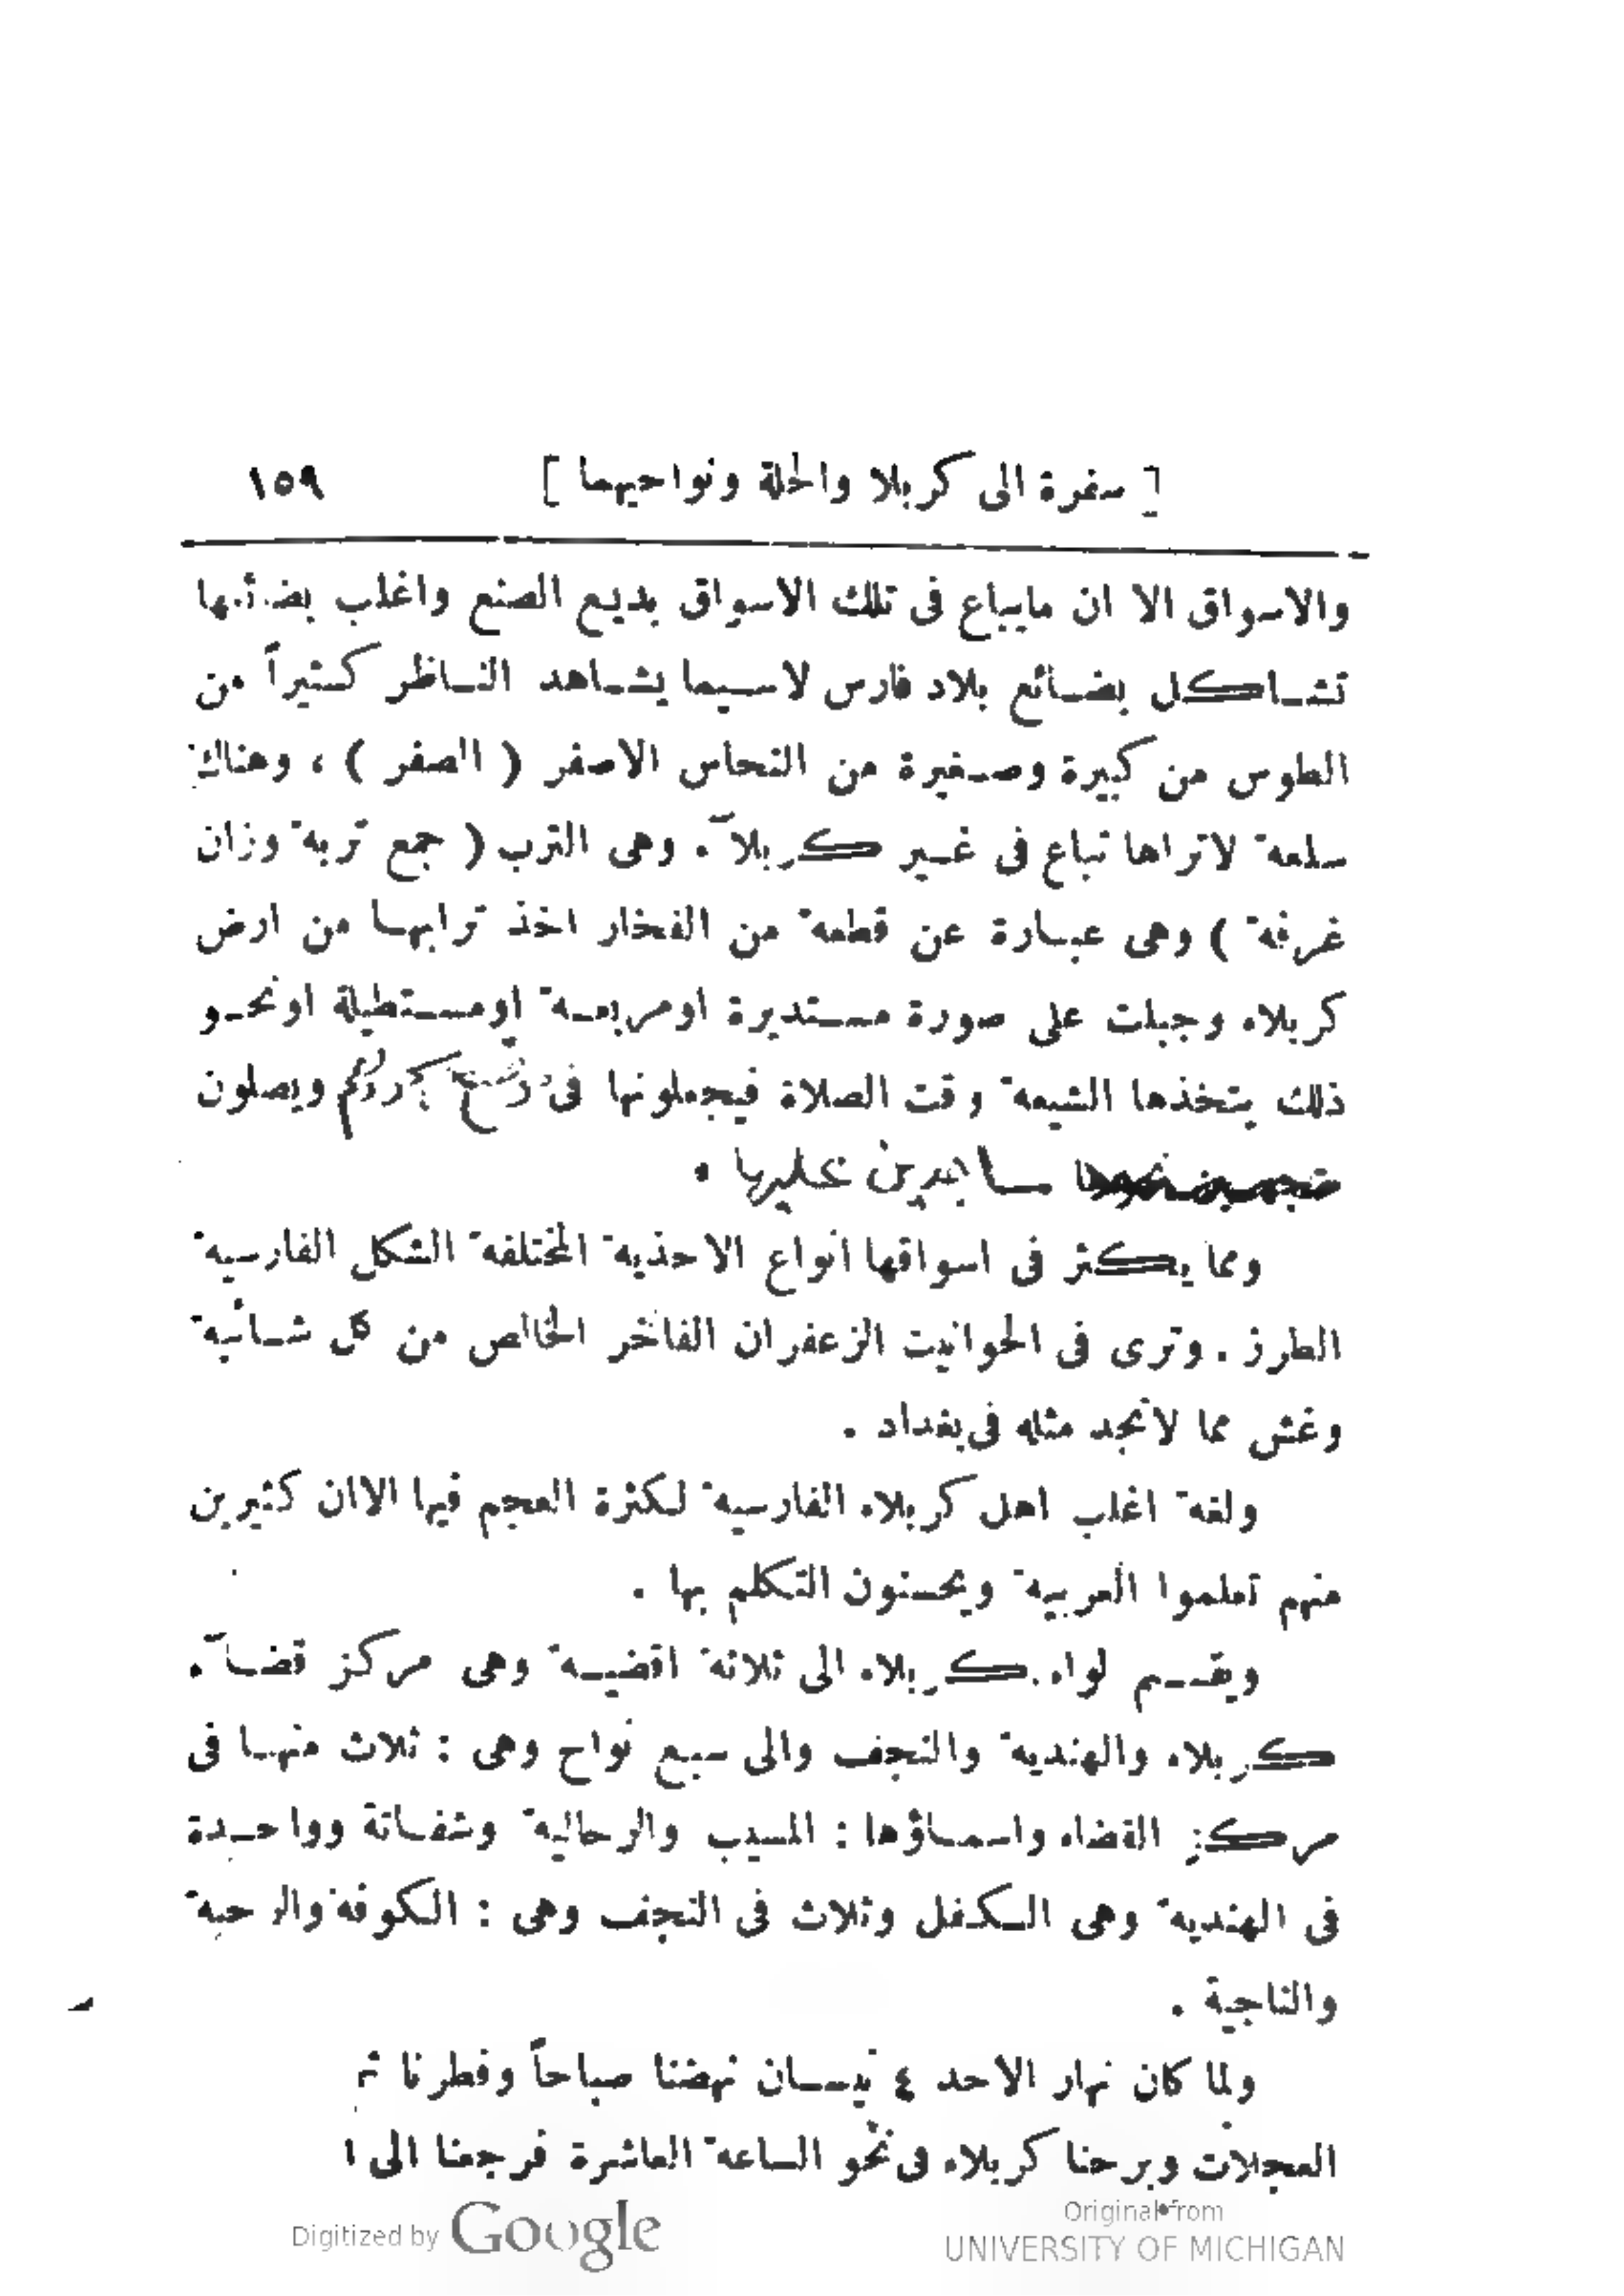 [ سفرة الى كربلا والحلة ونواحيهما ] ١٥٩
والاسواق الا ان مايباع فى تلك الاسواق بديع الصنع واغلب بضائعها
تشاكل بضائع بلاد فارس لاسيما يشاهد الناظر كثيراً من
الطوس من كبيرة وصغيرة من النحاس الاصفر ( الصفر ) ، وهناك
سلعة لاتراها تباع فى غير كربلآء . وهى الترب ( جمع تربة وزان
غرفة ) وهى عبارة عن قطعة من الفخار اخذ ترابها من ارض
كربلاء وجبلت على صورة مستديرة اومربعة اومستطيلة اونحو
ذلك يتخذها الشيعة وقت الصلاة فيجعلونها فى ويصلون
ساجدين عليها .
ومما يكثر فى اسواقها انواع الاحذية المختلفة الشكل الفارسية
الطرز . وترى فى الحوانيت الزعفران الفاخر الخالص من كل شائبة
وغش مما لاتجد مثله فى بغداد .
ولغة اغلب اهل كربلاء الفارسية لكثرة العجم فيها الاان كثيرين
منهم تعلموا العربية ويحسنون التكلم بها .
ويقسم لواء كربلاء الى ثلاثة اقضية وهى مركز قضآء
كربلاء والهندية والنجف والى سبع نواح وهى : ثلاث منها فى
مركز القضاء واسماؤها : المسيب والرحالية وشفاثة وواحدة
فى الهندية وهى الكفل وثلاث فى النجف وهى : الكوفة والرحبة
والناجية .
ولما كان نهار الاحد ٤ نيسان نهضنا صباحاً وفطرنا ثم
العجلات وبرحنا كربلاء فى نحو الساعة العاشرة فرجعنا الى ا
Digitized by Google
Original from
UNIVERSITY OF MICHIGAN